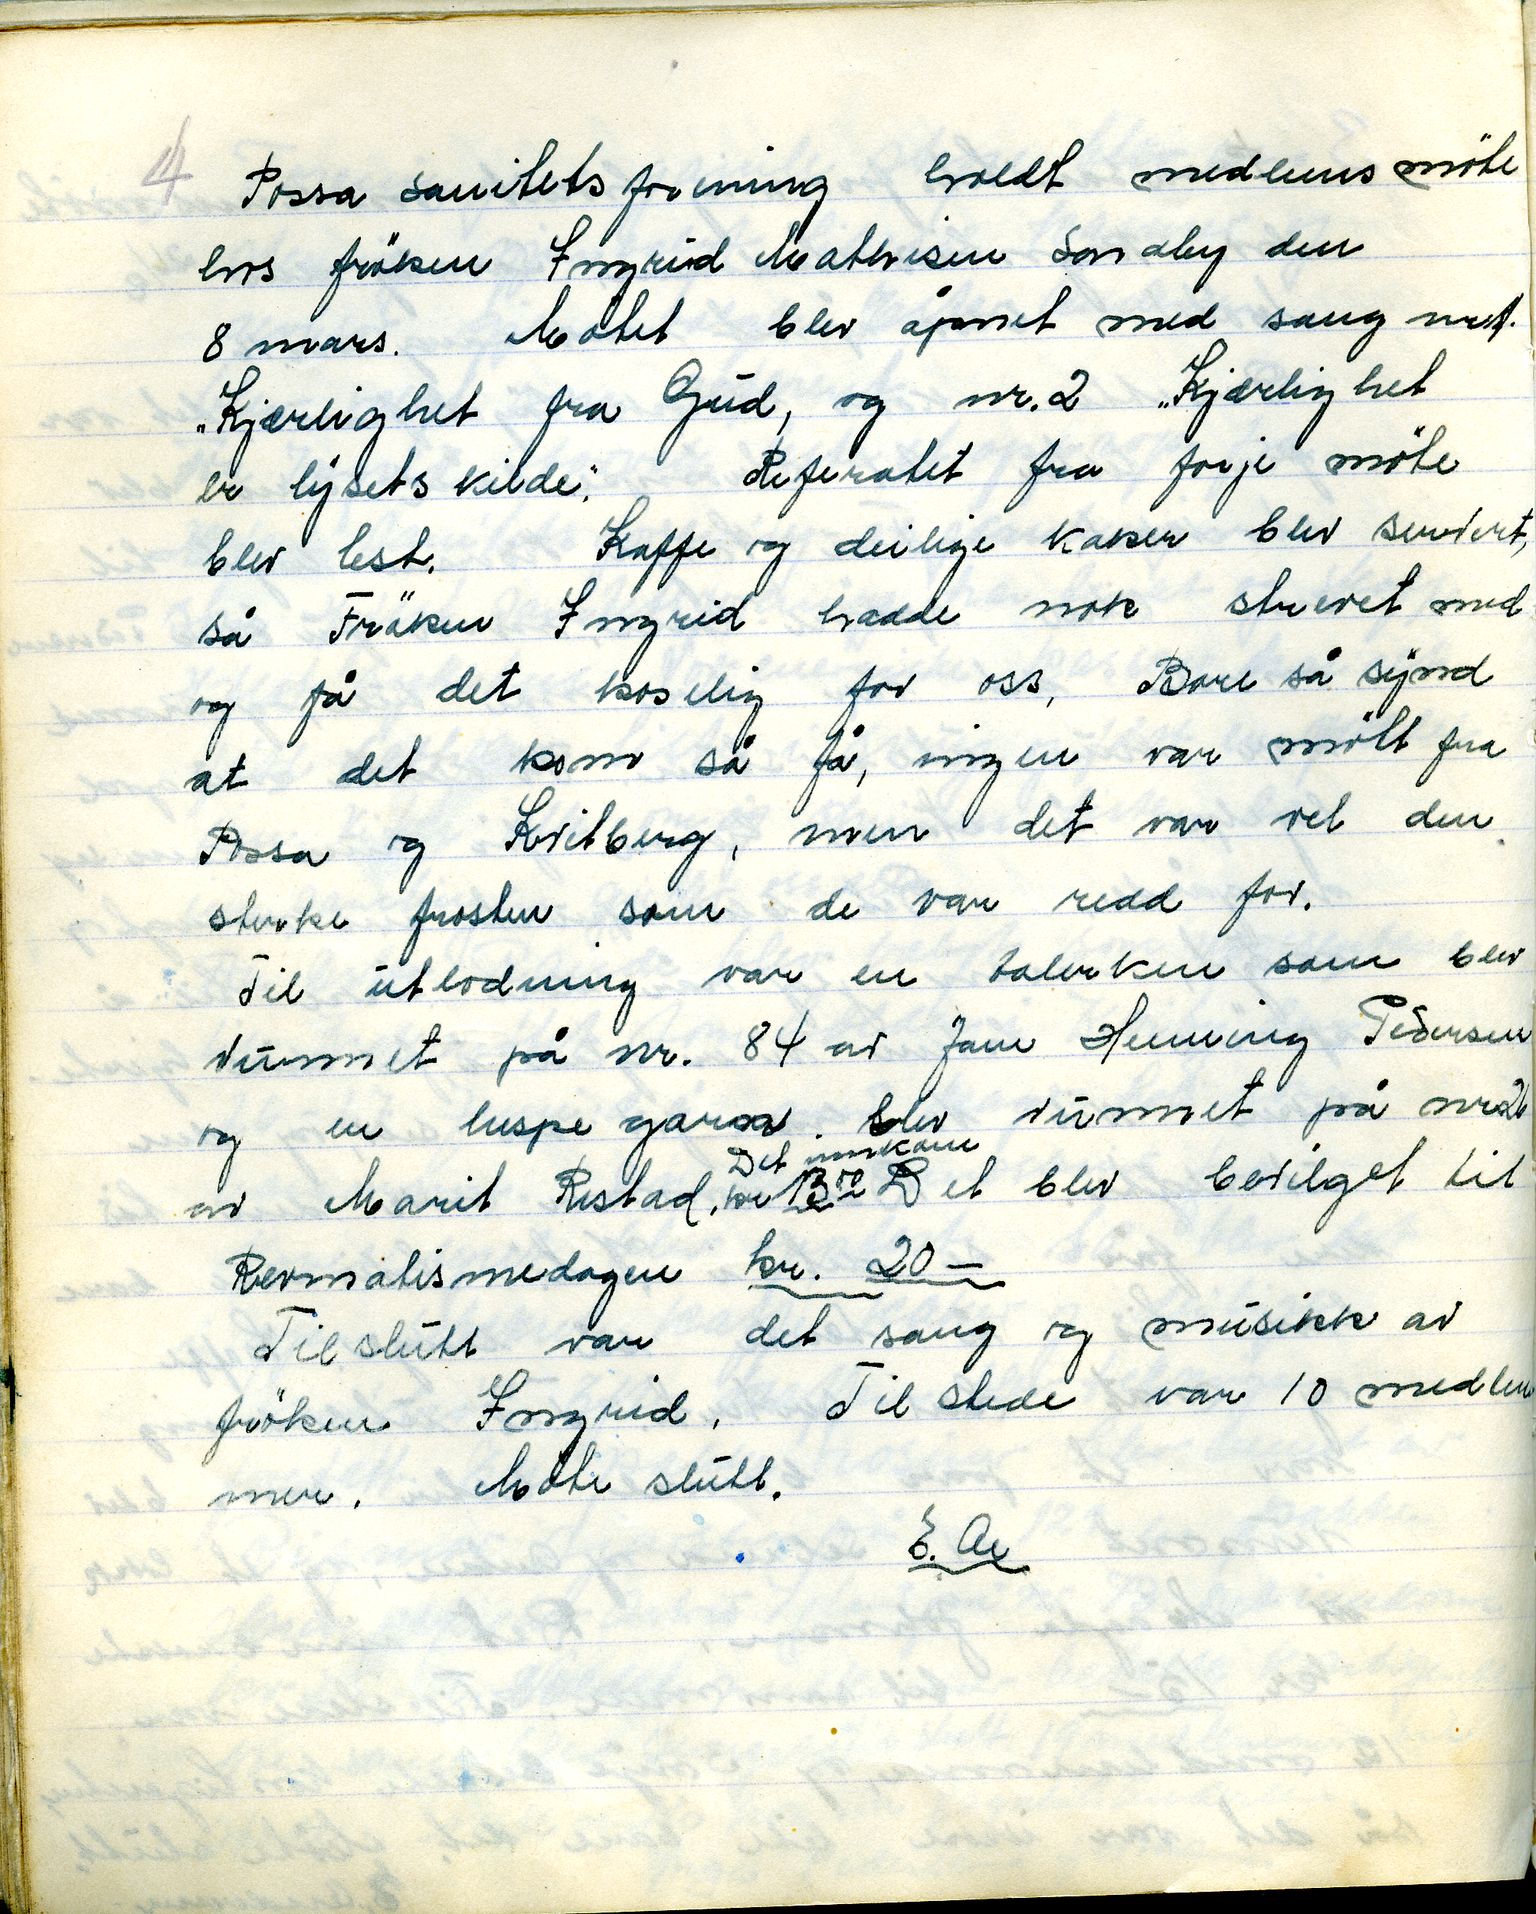 4
Possa Sanitetsforening holdt medlemsmöte
hos fröken Ingrid Mathisen Sandby den
8 mars. Mötet blev åpnet med sang nr. 1.
„Kjærlighet fra Gud, og nr. 2 „Kjærlighet
er lysets kilde". Referatet fra forje möte
blev lest. Kaffe og deilige kaker blev servert,
så Fröken Ingrid hadde nok strevet med
og få det koselig for oss, Bare så synd
at det kom så få, ingen var mött fra
Possa og Kvitberg, men det var vel den
sterke frosten som de var redd for.
Til utlodning var en talerken som blev
vunnet på nr. 84 av Jann Henning Pedersen
og en hespe garn. blev vunnet på nr 26
Det innkom
av Marit Ristad. kr 13 70 Det blev bevilget til
Revmatismedagen kr. 20 —
Tilslutt var det sang og musikk av
fröken Ingrid. Tilstede var 10 medlem
mer. Möte slutt.
E. Aa